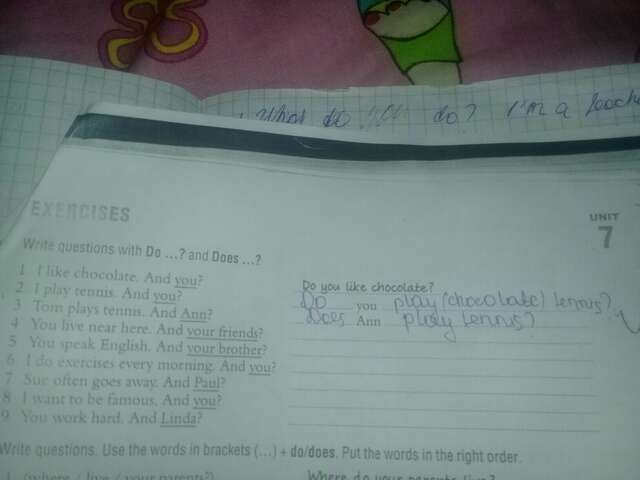 What do you do? I'm a
EXERCISES
UNIT
7
Write questions with Do ...? and Does ...?
1 I like chocolate. And you?
Do you like chocolate?
2 I play tennis. And you?
Do you play (chocolate) tennis?
3 Tom plays tennis. And Ann?
Does Ann play tennis?
4 You live near here. And your friends?
5 You speak English. And your brother?
6 I do exercises every morning. And you?
7 Sue often goes away. And Paul?
8 I want to be famous. And you?
9 You work hard. And Linda?
Write questions. Use the words in brackets (...) + do/does. Put the words in the right order.
1 (where / live / your parents?)
Where do your parents live?